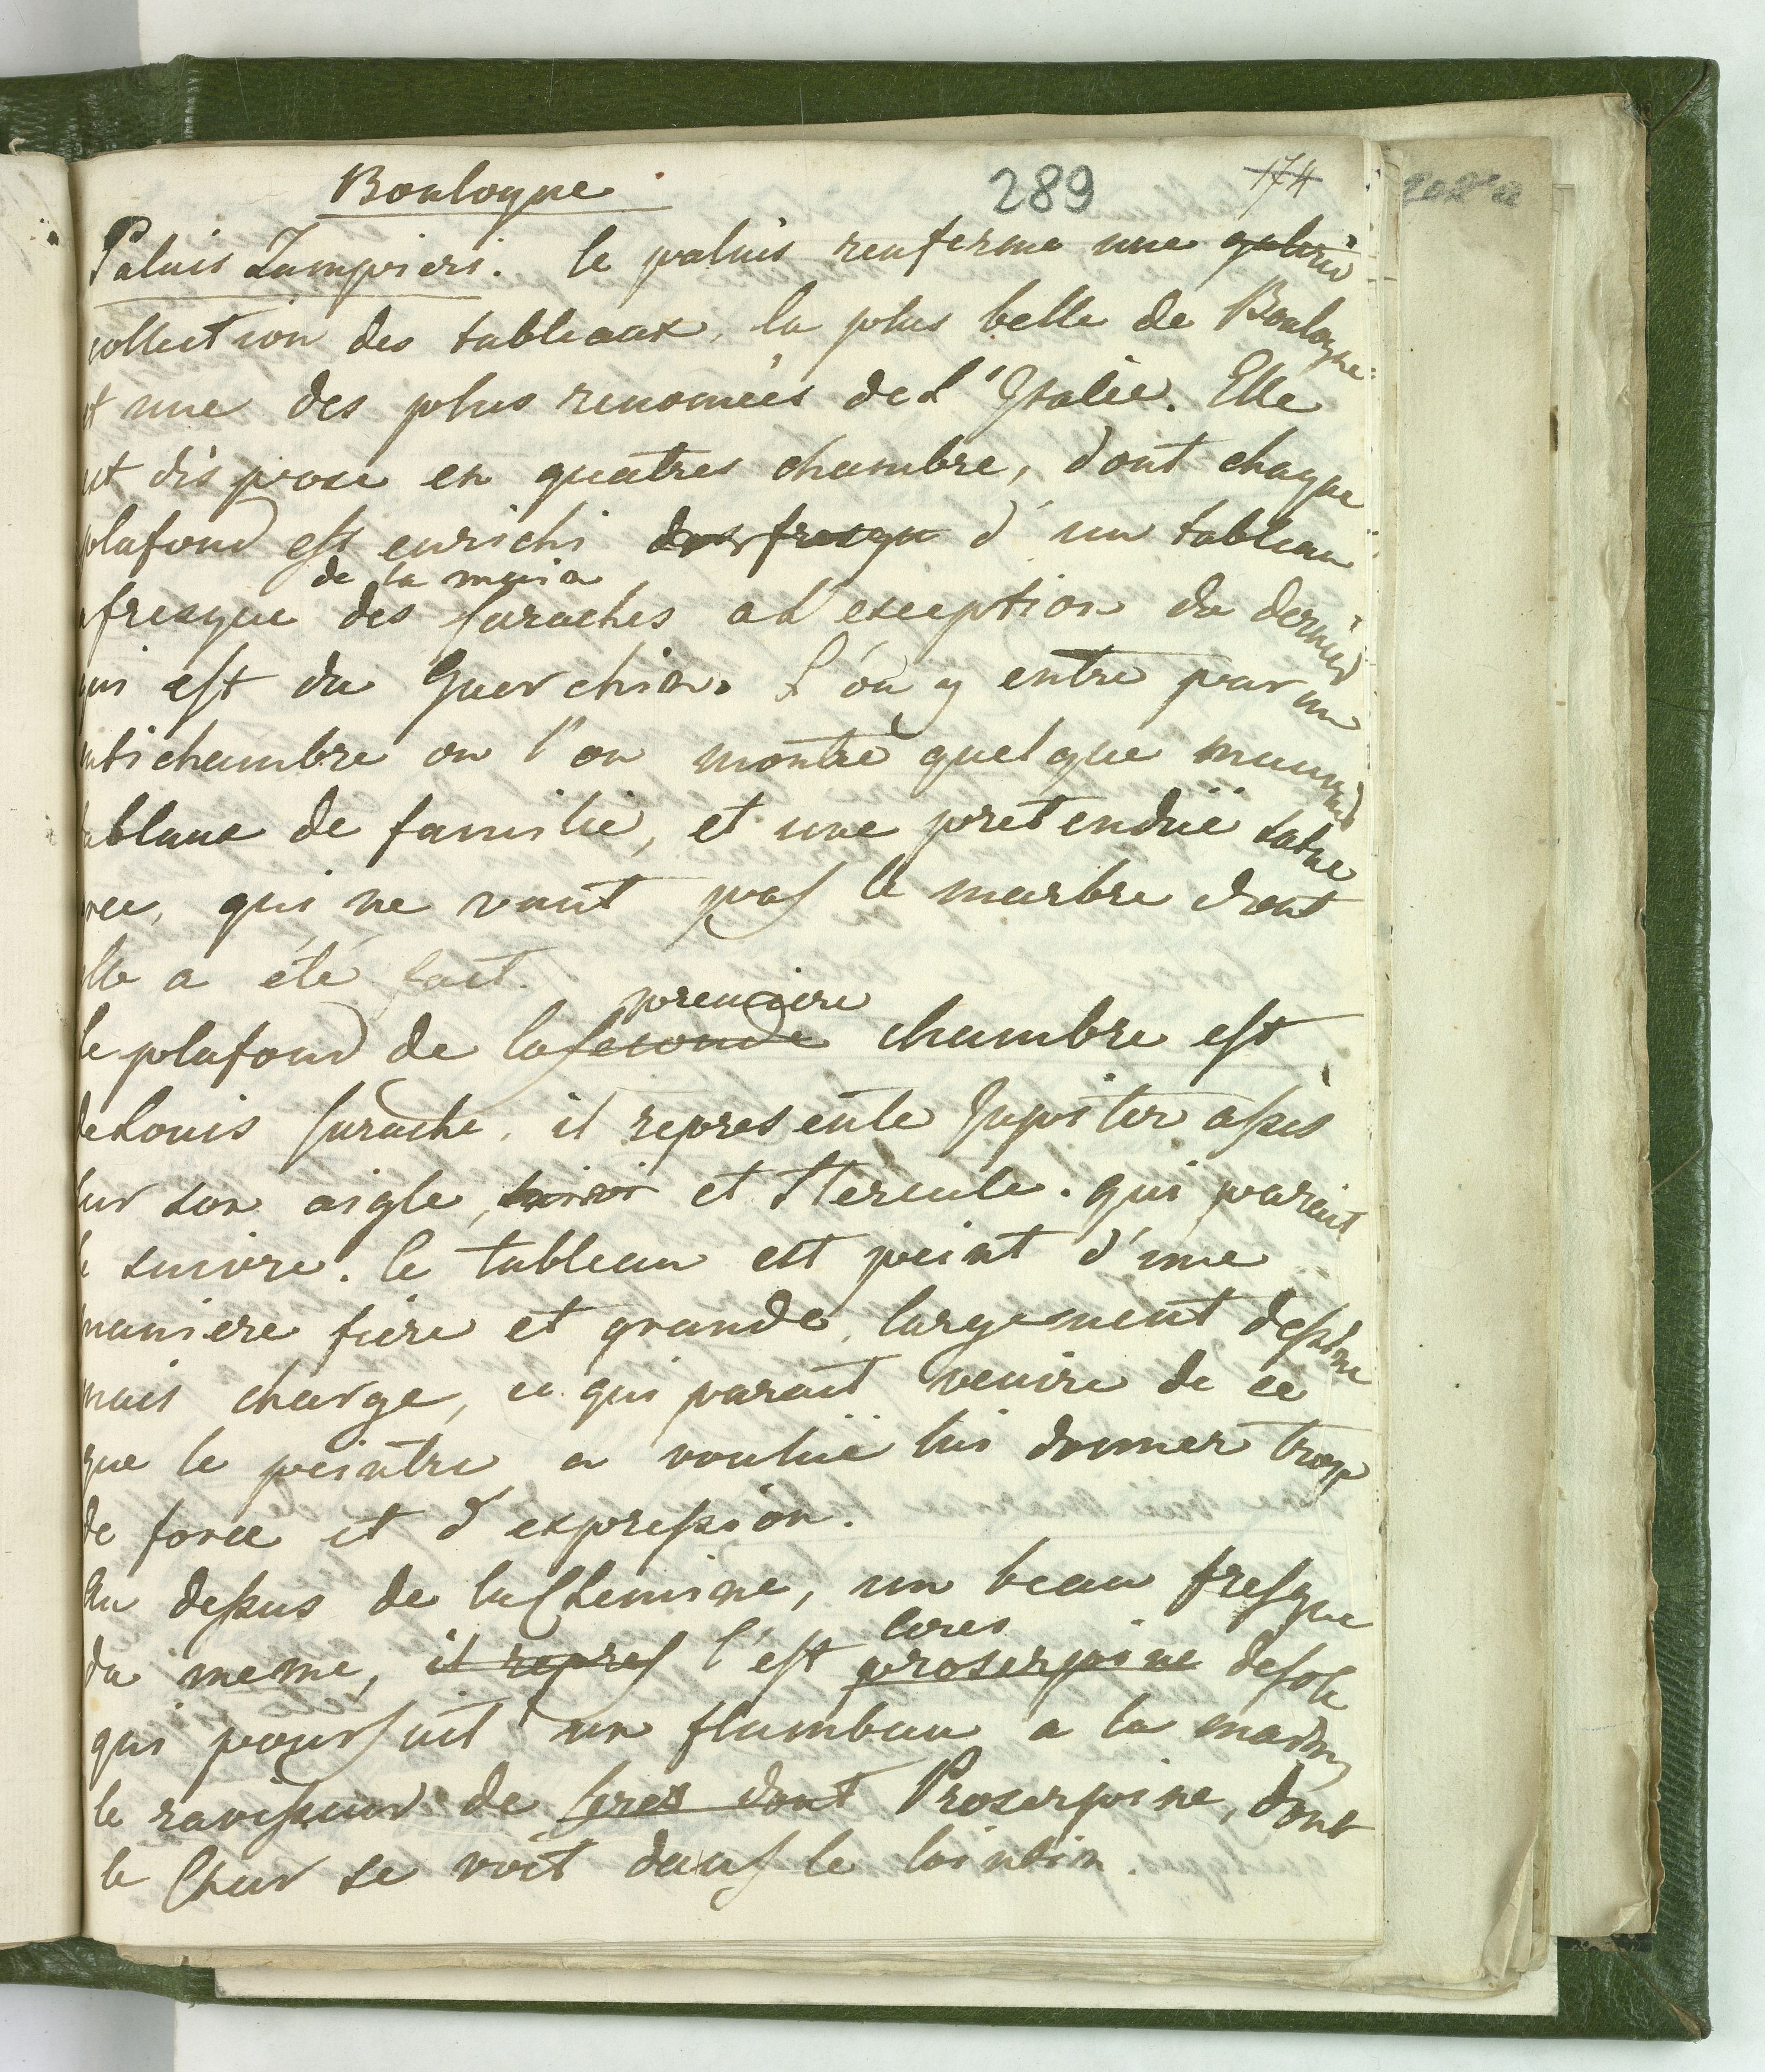 Boulogne 289 174
Palais Zampieri. le palais renferme une galerie
collection des tableaux, la plus belle de Boulogne
et une des plus renomées de L'Italie. Elle
est dispose en quatres chambre, dont chaque
plafond est enrichi des fresque d'un tableau
de la main
afresque des Caraches a L'exception du dernier
qui est du Guerchin. L'on y entre par un
antichambre ou l'on montre quelque mauvais
tablaux de familie, et une pretenduë statue
qui ne vaut pas le marbre dont
elle a été fait.
premiere
le plafond de la seconde chambre est
de Louis Carache. il represente Jupiter assis
sur son aigle, et Hercule. qui parait
le suivre. le tableau est peint d'une
maniere fiere et grande, largement dessine
mais charge, ce qui parait venire de ce
que le peintre a voulue lui donner trop
de force et d'expression.
Au dessus de la Chemine, un beau fresque
Ceres
du meme, il repres c'est proserpine desole
qui poursuit un flambau a la main
le ravisseur de Ceres dont Proserpine, dont
le Char se voit dans le lointin.